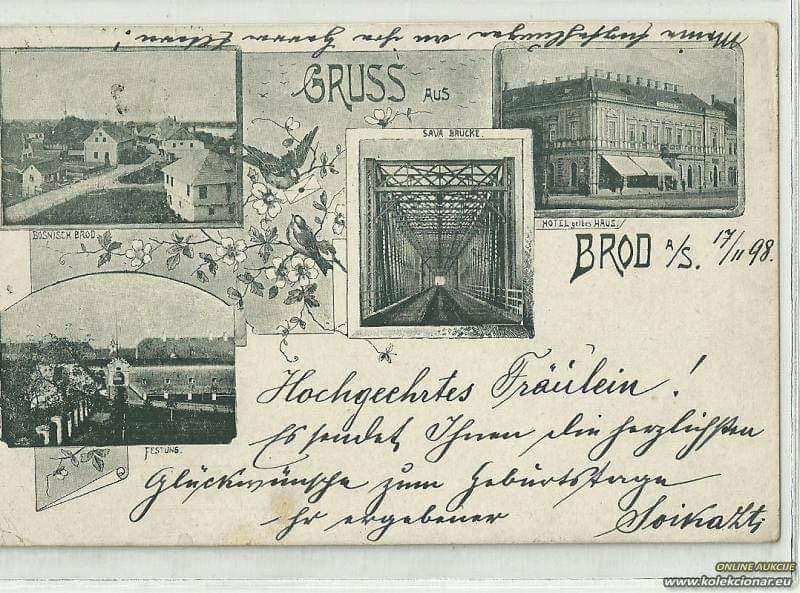 Meine Empfehlungen an ihre Herren Eltern!
GRUSS AUS
SAVA BRÜCKE.
BOSNISCH BROD.
HOTEL gelbes HAUS.
BROD A/S. 17/II 98.
FESTUNG.
Hochgeehrtes Fräulein!
Es sendet Ihnen die herzlichsten
Glückwünsche zum Geburtstage
Ihr ergebener
ONLINE AUKCIJE
www.kolekcionar.eu